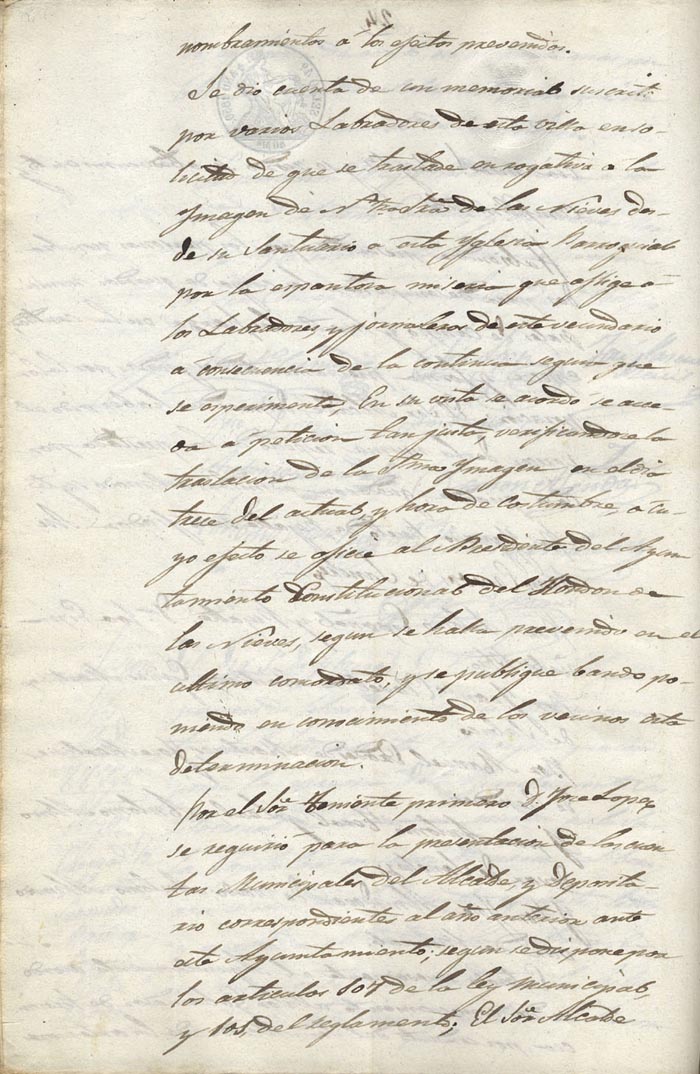 24
nombramientos á los efectos prevenidos.
Se dio cuenta de un memorial suscrito
por varios Labradores de esta villa en so-
licitud de que se traslade en rogativa a la
Ymagen de Ntra Sra de las Nieves des-
de su Santuario a esta Yglesia Parroquial
por la espantosa miseria que aflige a
los Labradores, y jornaleros de este vecindario
á consecuencia de la continua seguia que
se esperimenta, En su vista se acordó se acce-
da a peticion tan justa, verificandose la
traslacion de la Sma Ymagen en el dia
trece del actual, y hora de costumbre, a cu-
yo efecto se oficie al Presidente del Ayun
tamiento Constitucional del Hondon de
las Nieves, segun se halla prevenido en el
ultimo concordato, y se publique bando po-
niendo en conocimiento de los vecinos esta
determinacion.
Por el Sor Teniente primero D. Jose Lopez
se requirió para la presentacion de las cuen
tas Municipales del Alcalde, y Deposita-
rio correspondiente al año anterior ante
este Ayuntamiento; segun se dispone por
los articulos 107 de la ley municipal,
y 105 del reglamento; El Sor Alcalde